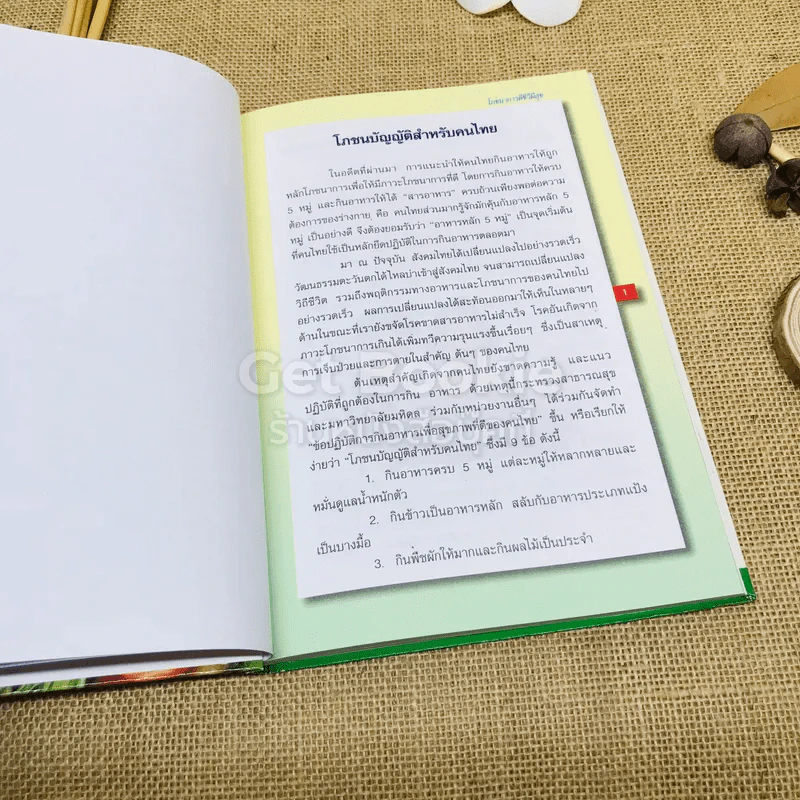 โภชนาการดีชีวีมีสุข
โภชนบัญญัติสำหรับคนไทย
ในอดีตที่ผ่านมา การแนะนำให้คนไทยกินอาหารให้ถูก
หลักโภชนาการเพื่อให้มีภาวะโภชนาการที่ดี โดยการกินอาหารให้ครบ
5 หมู่ และกินอาหารให้ได้ "สารอาหาร" ครบถ้วนเพียงพอต่อความ
ต้องการของร่างกาย คือ คนไทยส่วนมากรู้จักมักคุ้นกับอาหารหลัก 5
หมู่ เป็นอย่างดี จึงต้องยอมรับว่า "อาหารหลัก 5 หมู่" เป็นจุดเริ่มต้น
ที่คนไทยใช้เป็นหลักยึดปฏิบัติในการกินอาหารตลอดมา
มา ณ ปัจจุบัน สังคมไทยได้เปลี่ยนแปลงไปอย่างรวดเร็ว
วัฒนธรรมตะวันตกได้ไหลบ่าเข้าสู่สังคมไทย จนสามารถเปลี่ยนแปลง
วิถีชีวิต รวมถึงพฤติกรรมทางอาหารและโภชนาการของคนไทยไป
อย่างรวดเร็ว ผลการเปลี่ยนแปลงได้สะท้อนออกมาให้เห็นในหลายๆ
ด้านในขณะที่เรายังขจัดโรคขาดสารอาหารไม่สำเร็จ โรคอันเกิดจาก
ภาวะโภชนาการเกินได้เพิ่มทวีความรุนแรงขึ้นเรื่อยๆ ซึ่งเป็นสาเหตุ
การเจ็บป่วยและการตายในสำคัญ ต้นๆ ของคนไทย
ต้นเหตุสำคัญเกิดจากคนไทยยังขาดความรู้ และแนว
ปฏิบัติที่ถูกต้องในการกิน อาหาร ด้วยเหตุนี้กระทรวงสาธารณสุข
และมหาวิทยาลัยมหิดล ร่วมกับหน่วยงานอื่นๆ ได้ร่วมกันจัดทำ
"ข้อปฏิบัติการกินอาหารเพื่อสุขภาพที่ดีของคนไทย" ขึ้น หรือเรียกให้
ง่ายว่า "โภชนบัญญัติสำหรับคนไทย" ซึ่งมี 9 ข้อ ดังนี้
1. กินอาหารครบ 5 หมู่ แต่ละหมู่ให้หลากหลายและ
หมั่นดูแลน้ำหนักตัว
2. กินข้าวเป็นอาหารหลัก สลับกับอาหารประเภทแป้ง
เป็นบางมื้อ
3. กินพืชผักให้มากและกินผลไม้เป็นประจำ
1
Get Bookie
ร้านหนังสือบุ๊คกี้